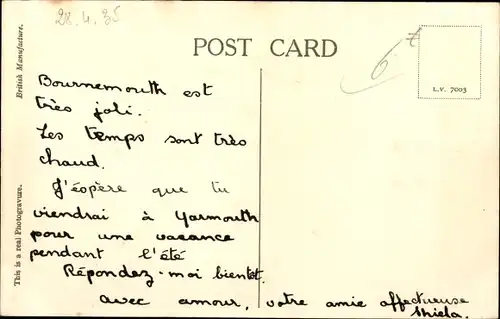 28.4.35
POST CARD
British Manufacture.
This is a real Photogravure.
L.V. 7003
Bournemouth est
très joli.
Les temps sont très
chaud.
J'éspère que tu
viendrai à Yarmouth
pour une vacance
pendant l'été
Répondez-moi bientôt.
avec amour, votre amie affectueuse
Shiela.